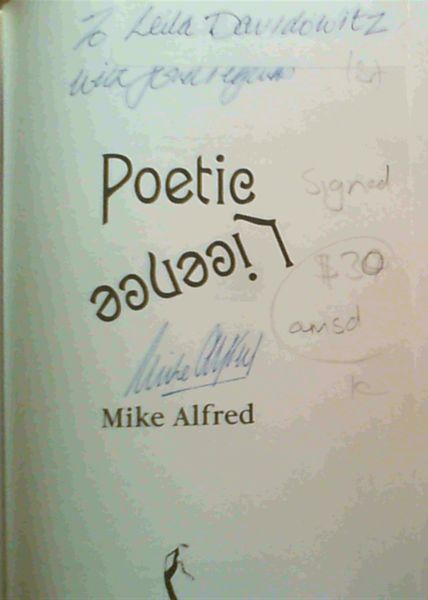 To Leila Davidowitz
with good regards
(St)
Poetic
Licence
Signed
$30
amsd
Mike Alfred
Mike Alfred
K